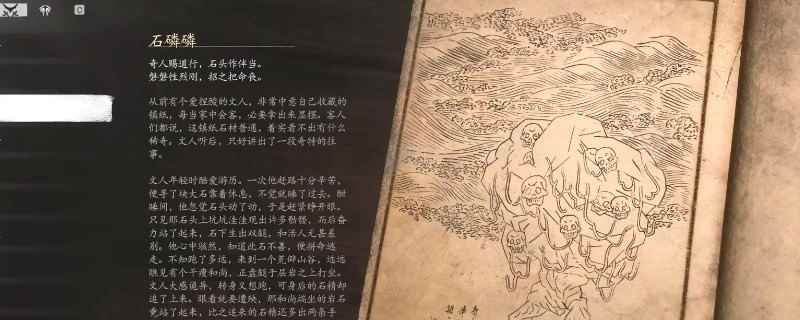 石磷磷
奇人赐道行，石头作伴当。
磐磐性烈刚，招之把命丧。
从前有个爱捏酸的文人，非常中意自己收藏的
镇纸，每当家中会客，必要拿出来显摆。客人
们都说，这镇纸石材普通，看实看不出有什么
稀奇。文人听后，只好讲出了一段奇特的往
事。
文人年轻时酷爱游历。一次他赶路十分辛苦，
便寻了块大石靠着休息，不觉就睡了过去。酣
睡间，他忽觉石头动了动，于是赶紧睁开眼。
只见那石头上坑坑洼洼现出许多骷髅，而后奋
力站了起来，石下生出双腿，和活人无甚差
别。他心中骇然，知道此石不善，便拼命逃
走。不知跑了多远，来到一个荒僻山谷，远远
瞧见有个干瘦和尚，正盘腿于层岩之上打坐。
文人大感诡异，转身又想跑，可身后的石精却
追了上来。眼看就要遭殃，那和尚端坐的岩石
竟站了起来，比之追来的石精还多出两条手